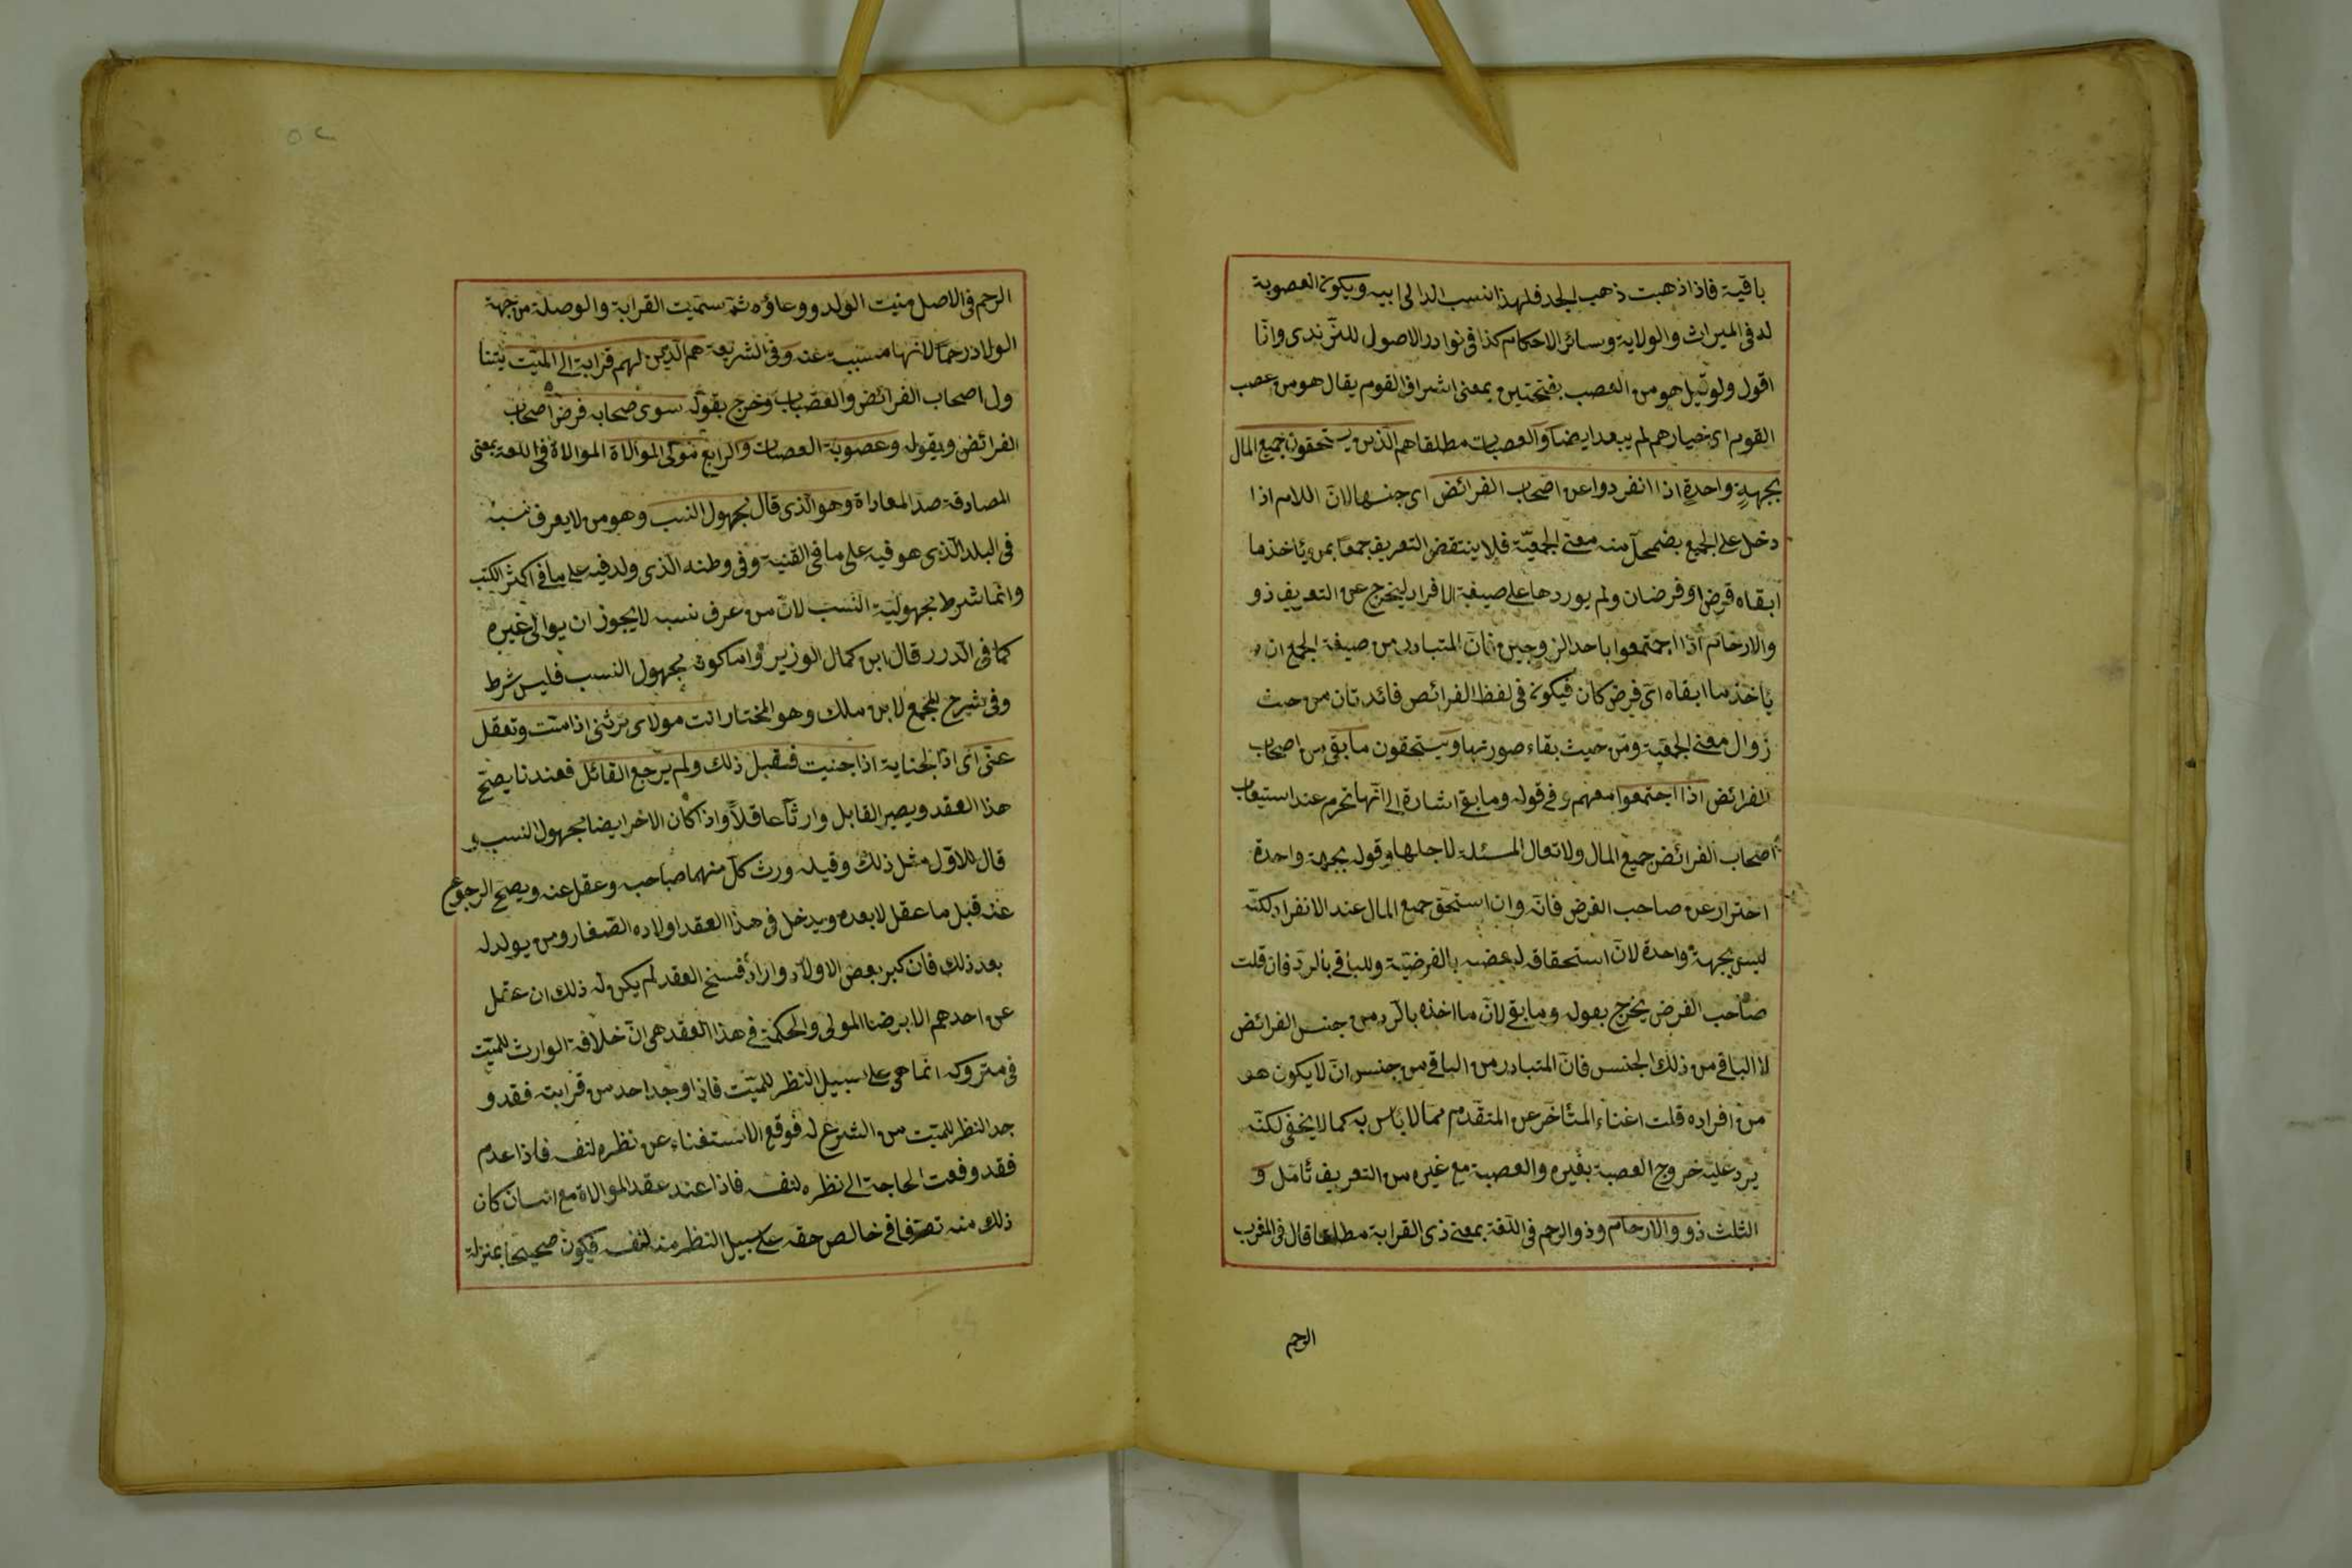 باقية فاذا ذهبت ذهب الجد فلهذا نسب الداال ابيه ويكون العصوبة
له فى الميراث والولاية وسائر الاحكام كذا فى نوادر الاصول للترندى وانا
اقول ولو قيل هو من العصب بفتحتين بمعنى اشراف القوم يقال هو من عصب
القوم اى خيارهم لم يبعد ايضا والعصبات مطلقا هم الذين يستحقون جميع المال
بجهة واحدة اذا انفردوا عن اصحاب الفرائض اى جنسها لان اللام اذا
دخل على الجمع يضمحل منه معنى الجمعية فلا ينتقض التعريف جمعا بمن يأخذ ما
ابقاه فرض او فرضان ولم يوردها على صيغة الافراد ليخرج عن التعريف ذو
والارحام اذا اجتمعوا باحد الزوجين فان المتبادر من صيغة الجمع ان
يأخذ ما ابقاه اى فرض كان فيكون فى لفظ الفرائض فائدتان من حيث
زوال معنى الجمعية ومن حيث بقاء صورتها ويستحقون ما بقى من اصحاب
الفرائض اذا اجتمعوا معهم وفى قوله وما بقى اشارة الى انها تحرم عند استيعاب
اصحاب الفرائض جميع المال ولا تعال المسئلة لاجلها وقوله بجهة واحدة
احتراز عن صاحب الفرض فانه وان استحق جميع المال عند الانفراد لكنه
ليس بجهة واحدة لان استحقاقه لبعضه بالفرضية وللباقى بالرد فان قلت
صاحب الفرض يخرج بقوله وما بقى لان ما اخذه بالرد من جنس الفرائض
لا الباقى من ذلك الجنس فان المتبادر من الباقى من جنس ان لا يكون هو
من افراده قلت اغناء المتأخر عن المتقدم مما لا بأس به كما لا يخفى لكنه
يرد عليه خروج العصبة بغيره والعصبة مع غيره من التعريف تأمل و
الثلث ذوو الارحام وذو الرحم فى اللغة بمعنى ذى القرابة مطلقا قال فى المغرب
الرحم
الرحم فى الاصل منبت الولد ووعاؤه ثم سميت القرابة والوصلة من جهة
الولاد رحما لانها مسببة عنه وفى الشريعة هم الذين لهم قرابة الى الميت يتنا
ول اصحاب الفرائض والعصبات وخرج بقوله سوى صحابه فرض اصحاب
الفرائض وبقوله وعصوبة العصبات والرابع مولى الموالاة الموالاة فى اللغة بمعنى
المصادقة ضد المعاداة وهو الذى قال مجهول النسب وهو من لا يعرف نسبه
فى البلد الذى هو فيه على ما فى القنية وفى وطنه الذى ولد فيه على ما فى اكثر الكتب
وانما شرط مجهولية النسب لان من عرف نسبه لا يجوز ان يوالى غيره
كما فى الدرر قال ابن كمال الوزير واما كونه مجهول النسب فليس شرط
وفى شرح المجمع لابن ملك وهو المختار انت مولاى ترثنى اذا مت وتعقل
عنى اى اذا الجناية اذا جنيت فقبل ذلك ولم يرجع القائل فعندنا يصح
هذا العقد ويصير القابل وارثا عاقلا واذا كان الاخر ايضا مجهول النسب و
قال للاول مثل ذلك وقبله ورث كل منهما صاحبه وعقل عنه ويصح الرجوع
عنه قبل ما عقل لا بعده ويدخل فى هذا العقد اولاده الصغار ومن يولد له
بعد ذلك فان كبر بعض الاولاد واراد فسخ العقد لم يكن له ذلك ان عقل
عن احدهم الا برضا المولى والحكمة فى هذا العقد هى ان خلافة الوارث للميت
فى متروكه انما هى على سبيل النظر للميت فاذا وجد احد من قرابته فقد و
جد النظر للميت من الشرع له فوقع الاستغناء عن نظره لنفسه فاذا عدم
فقد وقعت الحاجة الى نظره لنفسه فاذا عند عقد الموالاة مع انسان كان
ذلك منه تصرفا فى خالص حقه على سبيل النظر منه لنفسه فيكون صحيحا بمنزلة